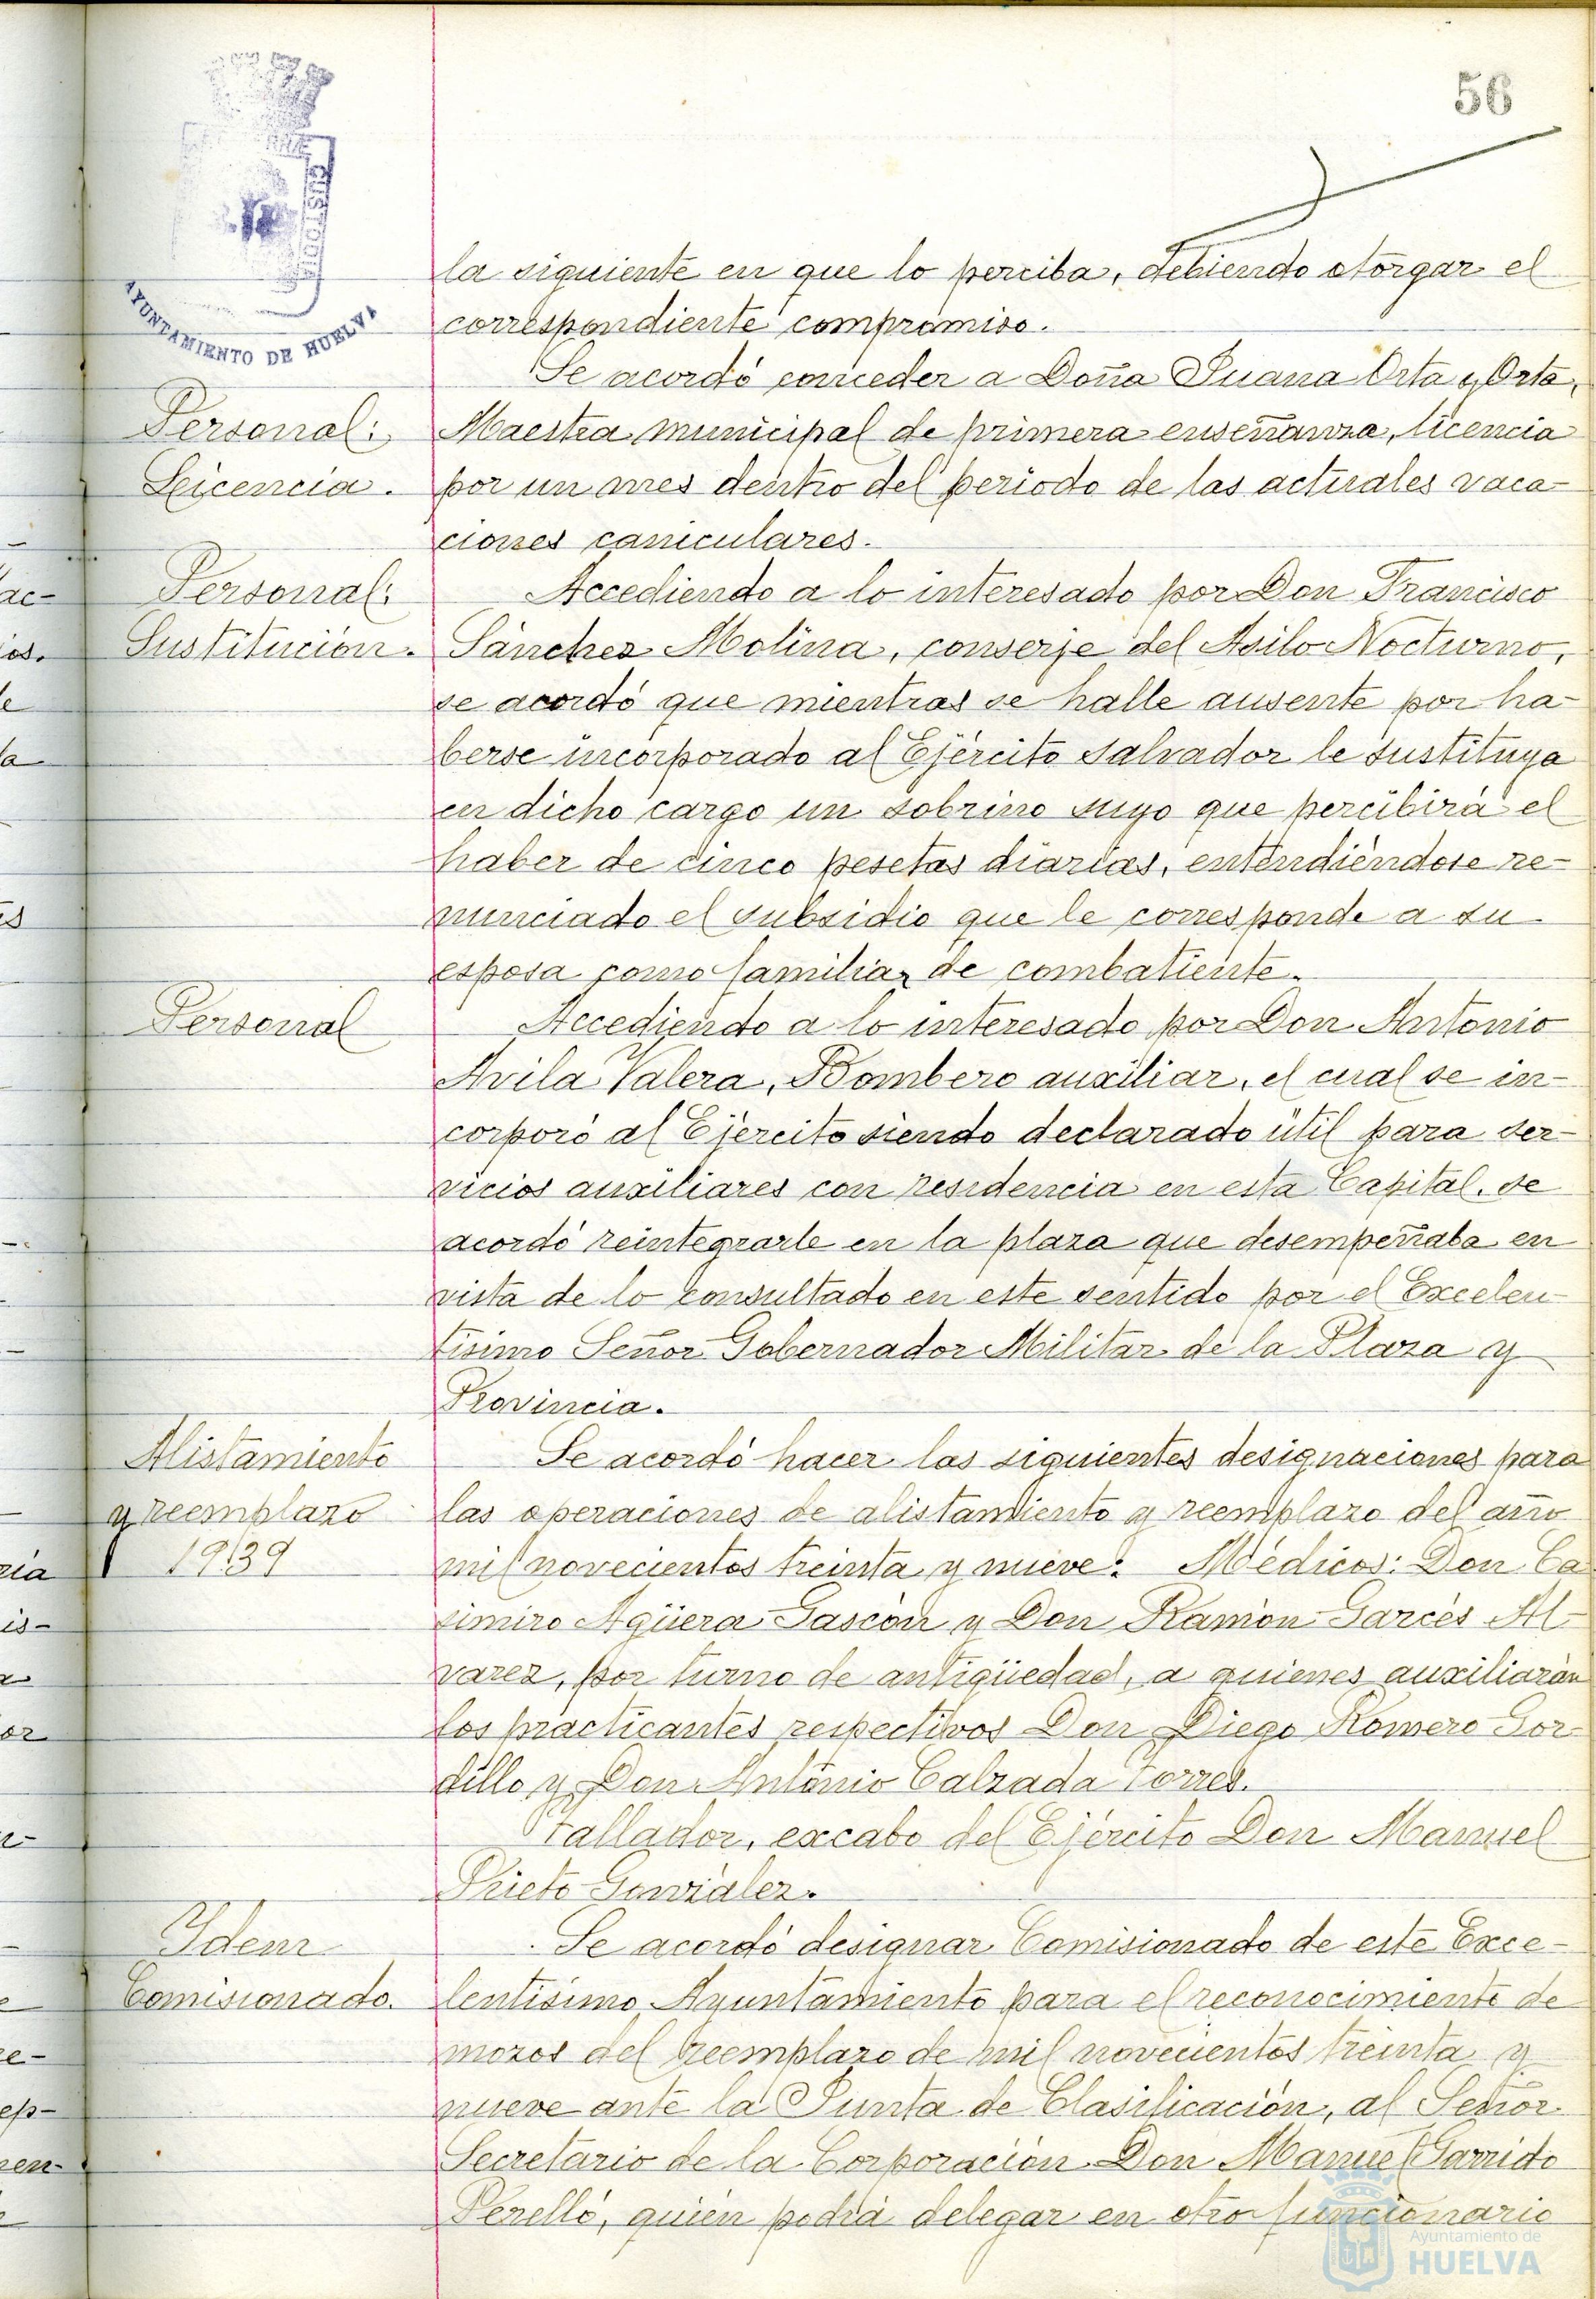 56
CUSTODIA
AYUNTAMIENTO DE HUELVA
la siguiente en que lo perciba, debiendo otorgar el
correspondiente compromiso.
Personal:
Licencia.
Se acordó conceder a Doña Juana Orta y Orta,
Maestra municipal de primera enseñanza, licencia
por un mes dentro del periodo de las actuales vaca-
ciones caniculares.
Personal:
Sustitución.
Accediendo a lo interesado por Don Francisco
Sánchez Molina, conserje del Asilo Nocturno,
se acordó que mientras se halle ausente por ha-
berse incorporado al Ejército salvador le sustituya
en dicho cargo un sobrino suyo que percibirá el
haber de cinco pesetas diarias, entendiéndose re-
nunciado el subsidio que le corresponde a su
esposa como familiar de combatiente.
Personal
Accediendo a lo interesado por Don Antonio
Avila Valera, Bombero auxiliar, el cual se in-
corporó al Ejército siendo declarado útil para ser-
vicios auxiliares con residencia en esta Capital, se
acordó reintegrarle en la plaza que desempeñaba en
vista de lo consultado en este sentido por el Excelen-
tísimo Señor Gobernador Militar de la Plaza y
Provincia.
Alistamiento
y reemplazo
1939
Se acordó hacer las siguientes designaciones para
las operaciones de alistamiento y reemplazo del año
mil novecientos treinta y nueve: Médicos: Don Ca
simiro Agüera Gascón y Don Ramón Garcés Al-
varez, por turno de antigüedad, a quienes auxiliarán
los practicantes respectivos Don Diego Romero Gor-
dillo y Don Antonio Calzada Torres.
Tallador, excabo del Ejército Don Manuel
Prieto González.
Idem
Comisionado.
Se acordó designar Comisionado de este Exce-
lentísimo Ayuntamiento para el reconocimiento de
mozos del reemplazo de mil novecientos treinta y
nueve ante la Junta de Clasificación, al Señor
Secretario de la Corporación Don Manuel Garrido
Perelló, quién podrá delegar en otro funcionario
Ayuntamiento de
HUELVA